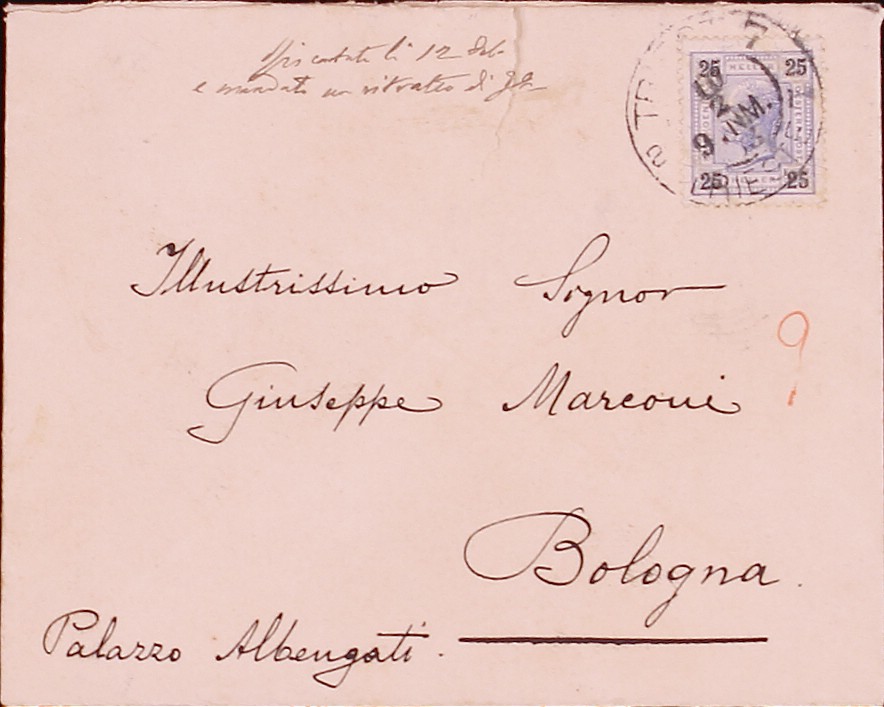 li 12
e mandato un ritratto di
25 HELLER 25
TRIEST
9
25 HELLER 25
Illustrissimo Signor
9
Giuseppe Marconi
Bologna.
Palazzo Albergati.